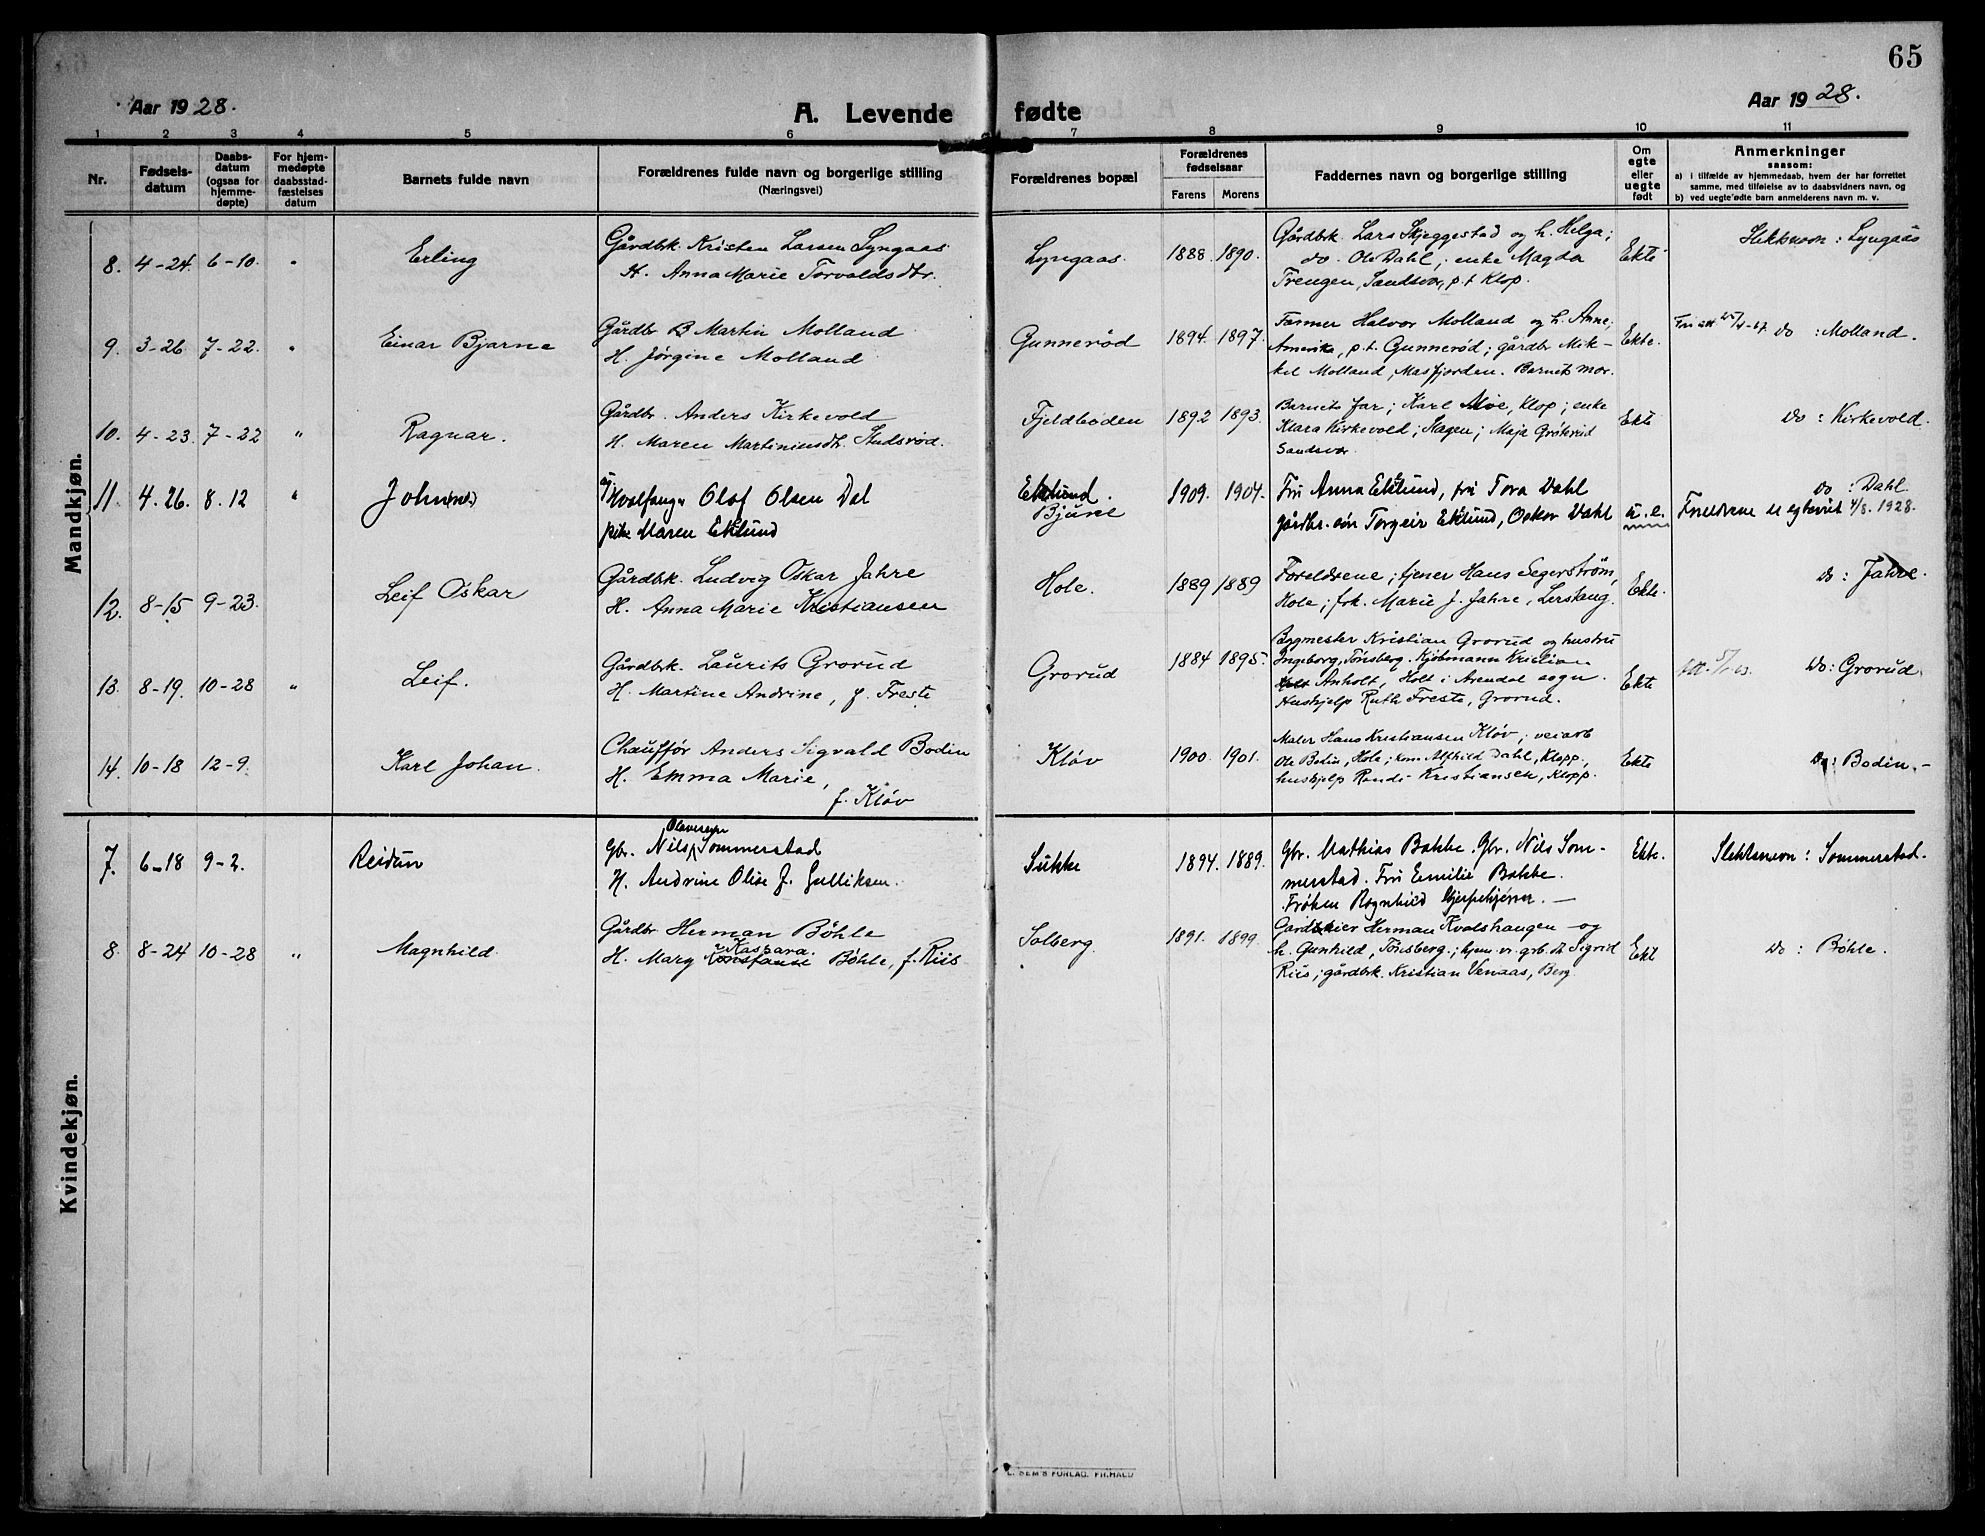 65
Aar 1928.
A. Levende fødte
Aar 1928.
1 2 3 4 5 6 7 8 9 10 11
Nr.
Fødsels-
datum
Daabs-
datum
(ogsaa for
hjemme-
døpte)
For hjem-
medøpte
daabsstad-
fæstelses
datum
Barnets fulde navn
Forældrenes fulde navn og borgerlige stilling
(Næringsvei)
Forældrenes bopæl
Forældrenes
fødselsaar
Farens Morens
Faddernes navn og borgerlige stilling
Om
egte
eller
uegte
født
Anmerkninger
saasom:
a) i tilfælde av hjemmedaab, hvem der har forrettet
samme, med tilføielse av to daabsvidners navn, og
b) ved uegte fødte barn anmelderens navn m. v.
Mandkjøn.
8. 4-24. 6-10. " Erling
Gårdbk. Kristen Larsen Lyngaas
H. Anna Marie Torvaldsdtr.
Lyngaas. 1888. 1890.
Gårdbrk. Lars Skjeggestad og h. Helga;
do. Ole Dahl; enke Magda
Trengen, Sandsvær, p.t Klop.
Ekte
Slektsnavn: Lyngaas
9. 3-26. 7-22. " Einar Bjarne
Gårdbr B Martin Molland
H. Jørgine Molland
Gunnerød 1894. 1897.
Farmer Halvor Molland og h. Anne,
Amerika, p.t. Gunnerød; gårdbr Mik-
kel Molland, Masfjorden. Barnets mor.
Ekte.
do: Molland.
10. 4-23. 7-22 " Ragnar.
Gårdbr. Anders Kirkevold
H. Maren Martinusdtr. Sudsrød.
Fjeldboden 1892 1893.
Barnets far; Karl Moe, Klop; enke
Klara Kirkevold; Slagen; Maja Grøterud
Sandsvær
Ekte
do: Kirkevold.
11. 4-26. 8.12 " John
Hvalfang. Olof Olsen Dal
pike Maren Eklund
Eklund.
Bjune
1909. 1904.
Fru Anna Eklund, fru Tora Dahl
gårdbr. søn Torgeir Eklund, Oskar Dahl
u.e.
do: Dahl.
Foreldrene er egteviet 4/8. 1928.
12. 8-15 9-23. Leif Oskar
Gårdbrk. Ludvig Oskar Jahre
H. Anna Marie Kristiansen
Hole. 1889 1889
Foreldrene; tjener Hans Segerstrøm,
Hole; frk. Marie J. Jahre, Lerskaug.
Ekte.
do: Jahre.
13. 8-19. 10-28 " Leif.
Gårdbrk. Laurits Grorud
H. Martine Andrine, f. Freste
Grorud 1884 1895.
Bygmester Kristian Grorud og hustru
Ingeborg, Tønsberg. Kjøbmann Kristian
Anholt, Holt i Arendal sogn.
Hushjelp Ruth Freste, Grorud.
Ekte
do: Grorud.
14. 10-18 12-9. Karl Johan.
Chauffør Anders Sigvald Bodin
H. Emma Marie,
f. Kløv
Kløv 1900. 1901.
Maler Hans Kristiansen Kløv; veiarb
Ole Bodin, Hole; kone Alfhild Dahl, Klopp,
hushjelp Randi Kristiansen, Klopp.
Ekte
do: Bodin. -
Kvindekjøn.
7. 6-18 9-2. Reidun
Olavesen
Gbr. Nils Sommerstad
H. Andrine Olise f. Gulliksen.
Sukke 1894. 1889.
Gbr. Mathias Bakke. Gbr. Nils Som-
merstad. Fru Emilie Bakke.
Frøken Ragnhild
Ekte.
Slektsnavn: Sommerstad.
8. 8-24 10-28 " Magnhild.
Gårdbr Herman Bøhle
Kaspara
H. Mary Konstanse Bøhle, f. Riis
Solberg. 1891. 1899.
Gårdeier Herman Kvalshaugen og
h. Gunhild, Tønsberg; hjemv. grb. dt. Sigrid
Riis; gårdbrk. Kristian Venaas, Berg.
Ekt
do: Bøhle.
E. SEM'S FORLAG. FR.HALD